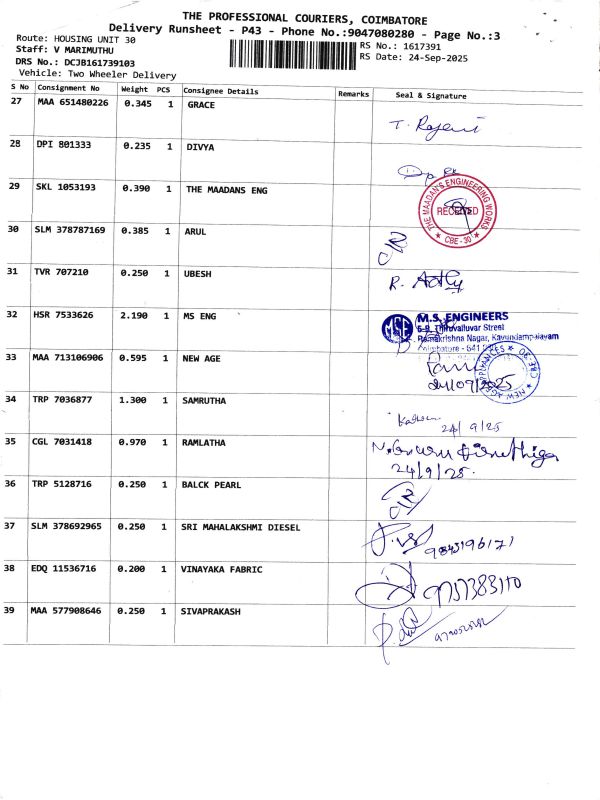 THE PROFESSIONAL COURIERS, COIMBATORE
Delivery Runsheet - P43 - Phone No.:9047080280 - Page No.:3
Route: HOUSING UNIT 30
Staff: V MARIMUTHU
RS No.: 1617391
DRS No.: DCJB161739103
RS Date: 24-Sep-2025
Vehicle: Two Wheeler Delivery
S No Consignment No Weight PCS Consignee Details Remarks Seal & Signature
27 MAA 651480226 0.345 1 GRACE
T. Rajeni
28 DPI 801333 0.235 1 DIVYA
29 SKL 1053193 0.390 1 THE MAADANS ENG
THE MAADAN'S ENGINEERING WORKS
RECEIVED
★ CBE - 30 ★
30 SLM 378787169 0.385 1 ARUL
31 TVR 707210 0.250 1 UBESH
R.
32 HSR 7533626 2.190 1 MS ENG
MSE M.S. ENGINEERS
Thiruvalluvar Street
Ramakrishna Nagar, Kavundampalayam
Coimbatore - 641
33 MAA 713106906 0.595 1 NEW AGE
★ NEW AGE APPLIANCES ★ CBE-30
24/09/2025
34 TRP 7036877 1.300 1 SAMRUTHA
24/9/25
35 CGL 7031418 0.970 1 RAMLATHA
24/9/25.
36 TRP 5128716 0.250 1 BALCK PEARL
37 SLM 378692965 0.250 1 SRI MAHALAKSHMI DIESEL
9843196171
38 EDQ 11536716 0.200 1 VINAYAKA FABRIC
39 MAA 577908646 0.250 1 SIVAPRAKASH